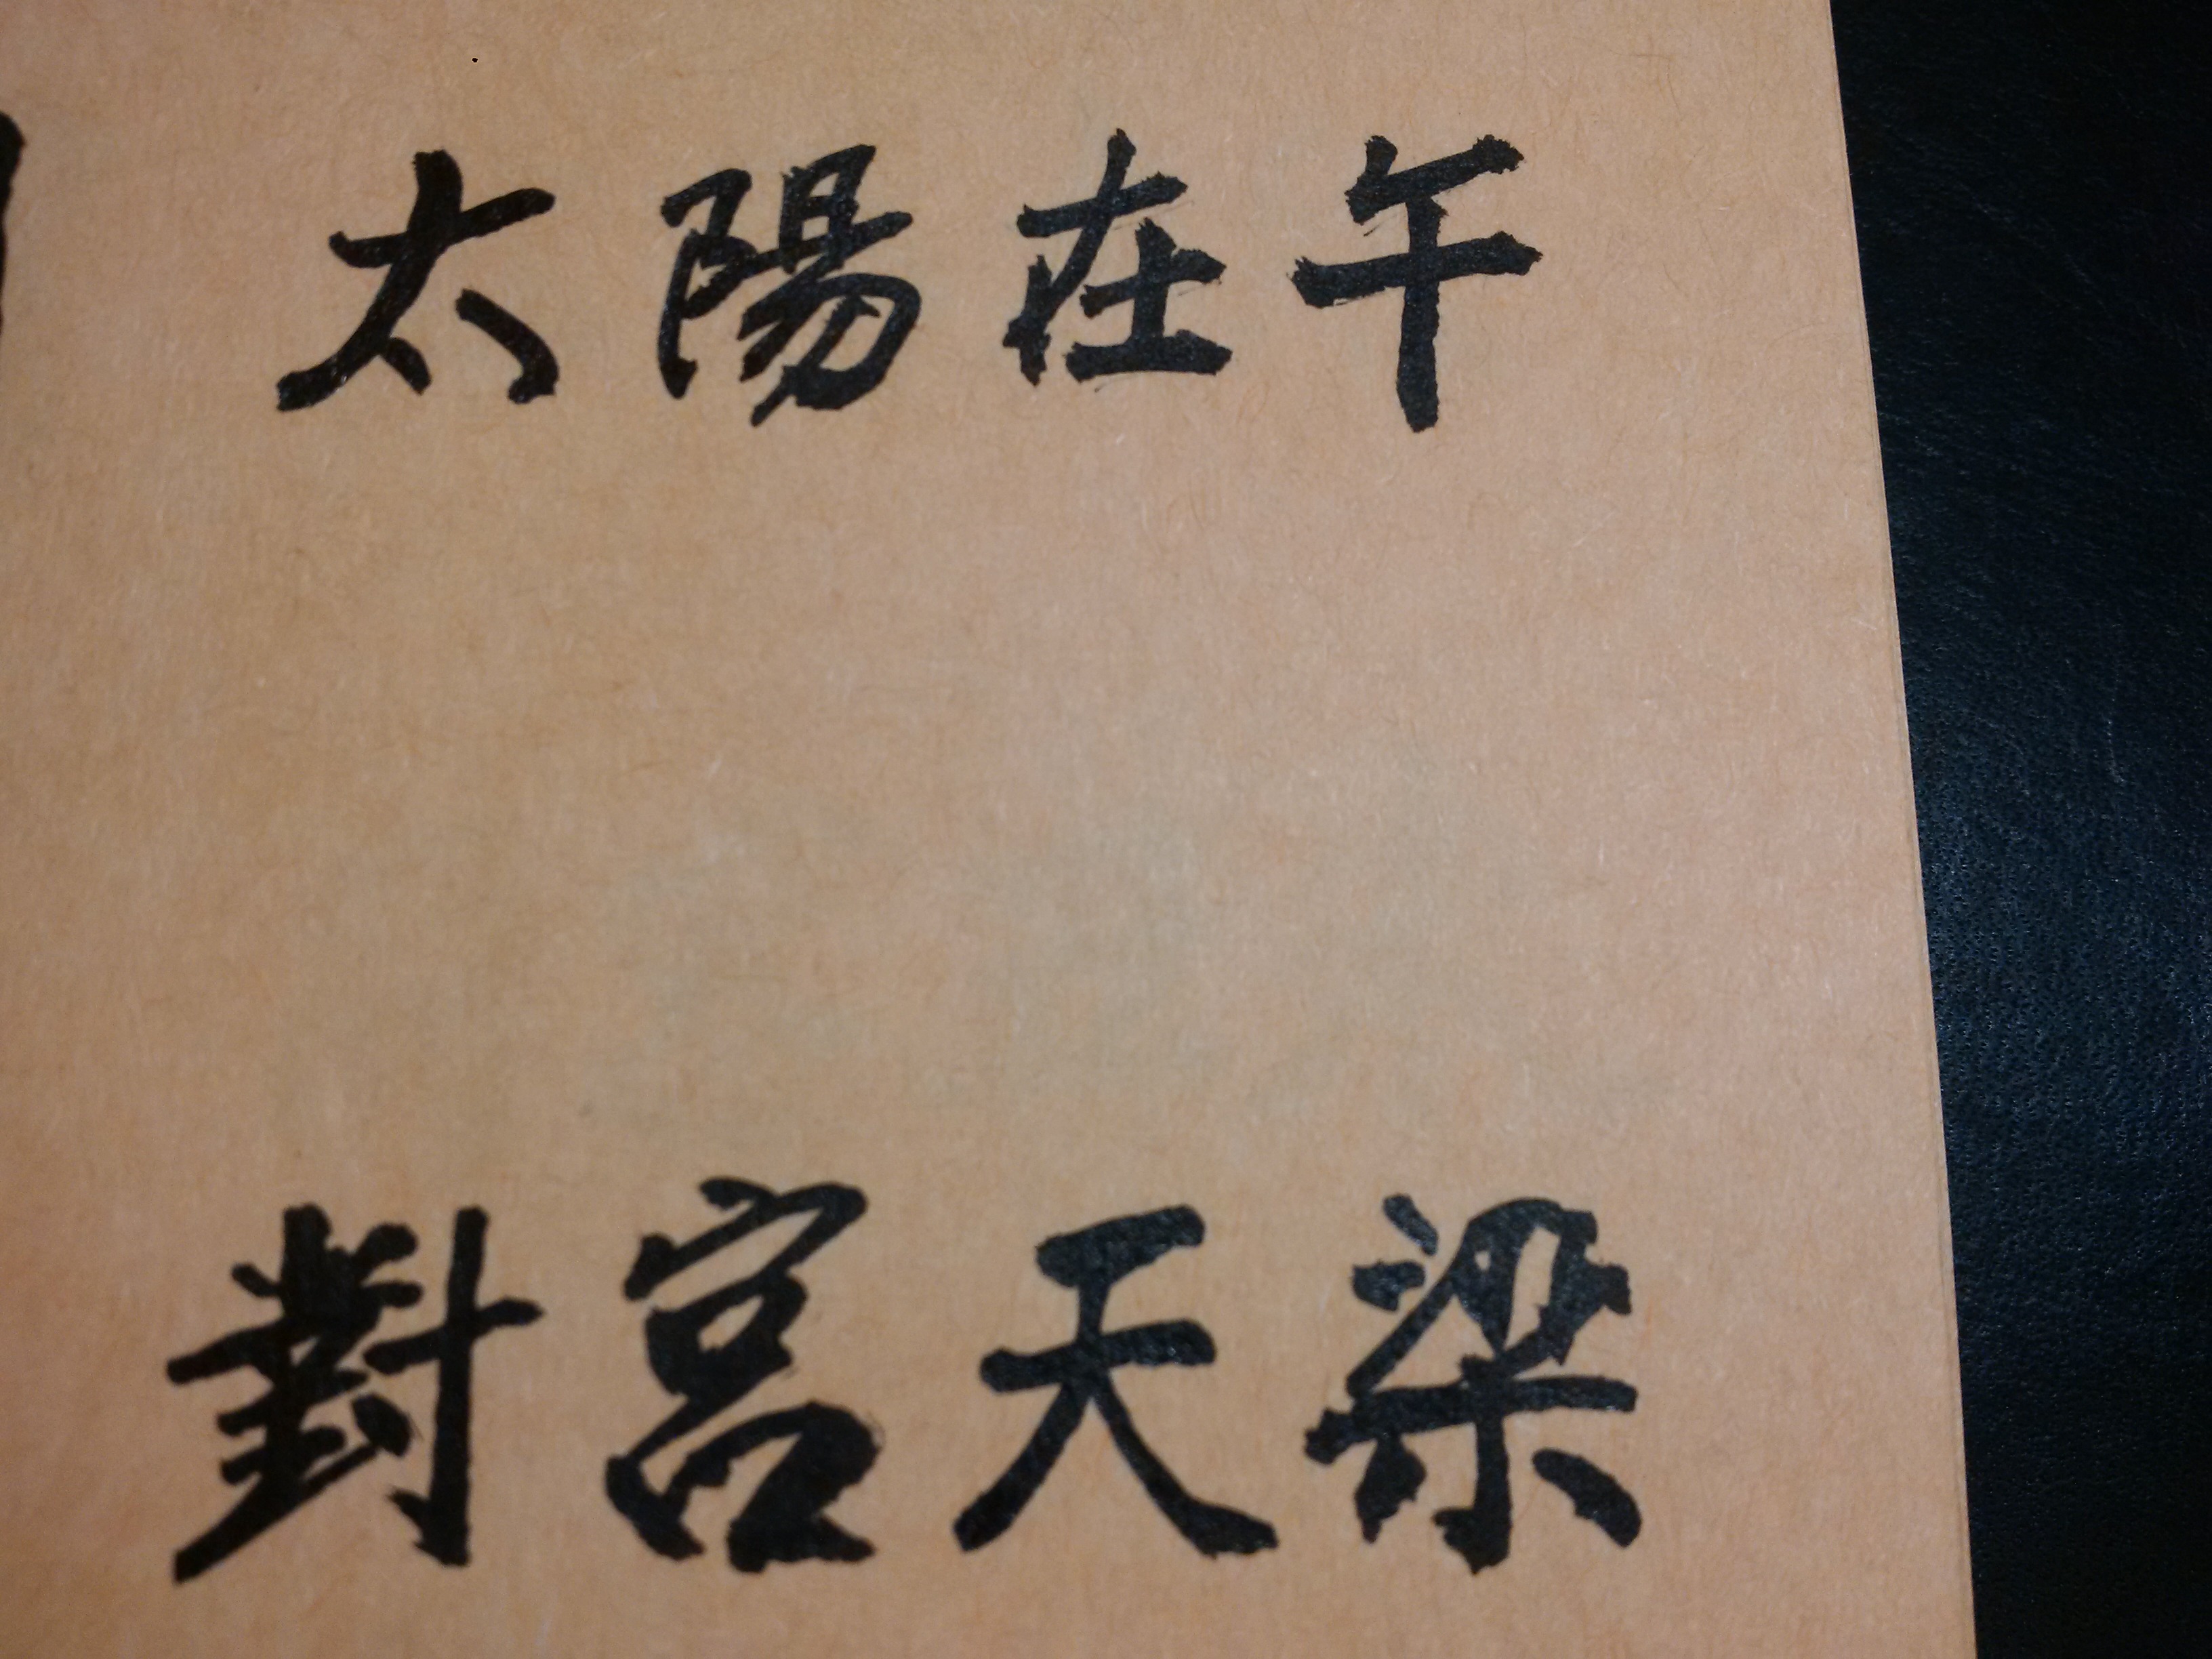 太陽在午
對宮天梁